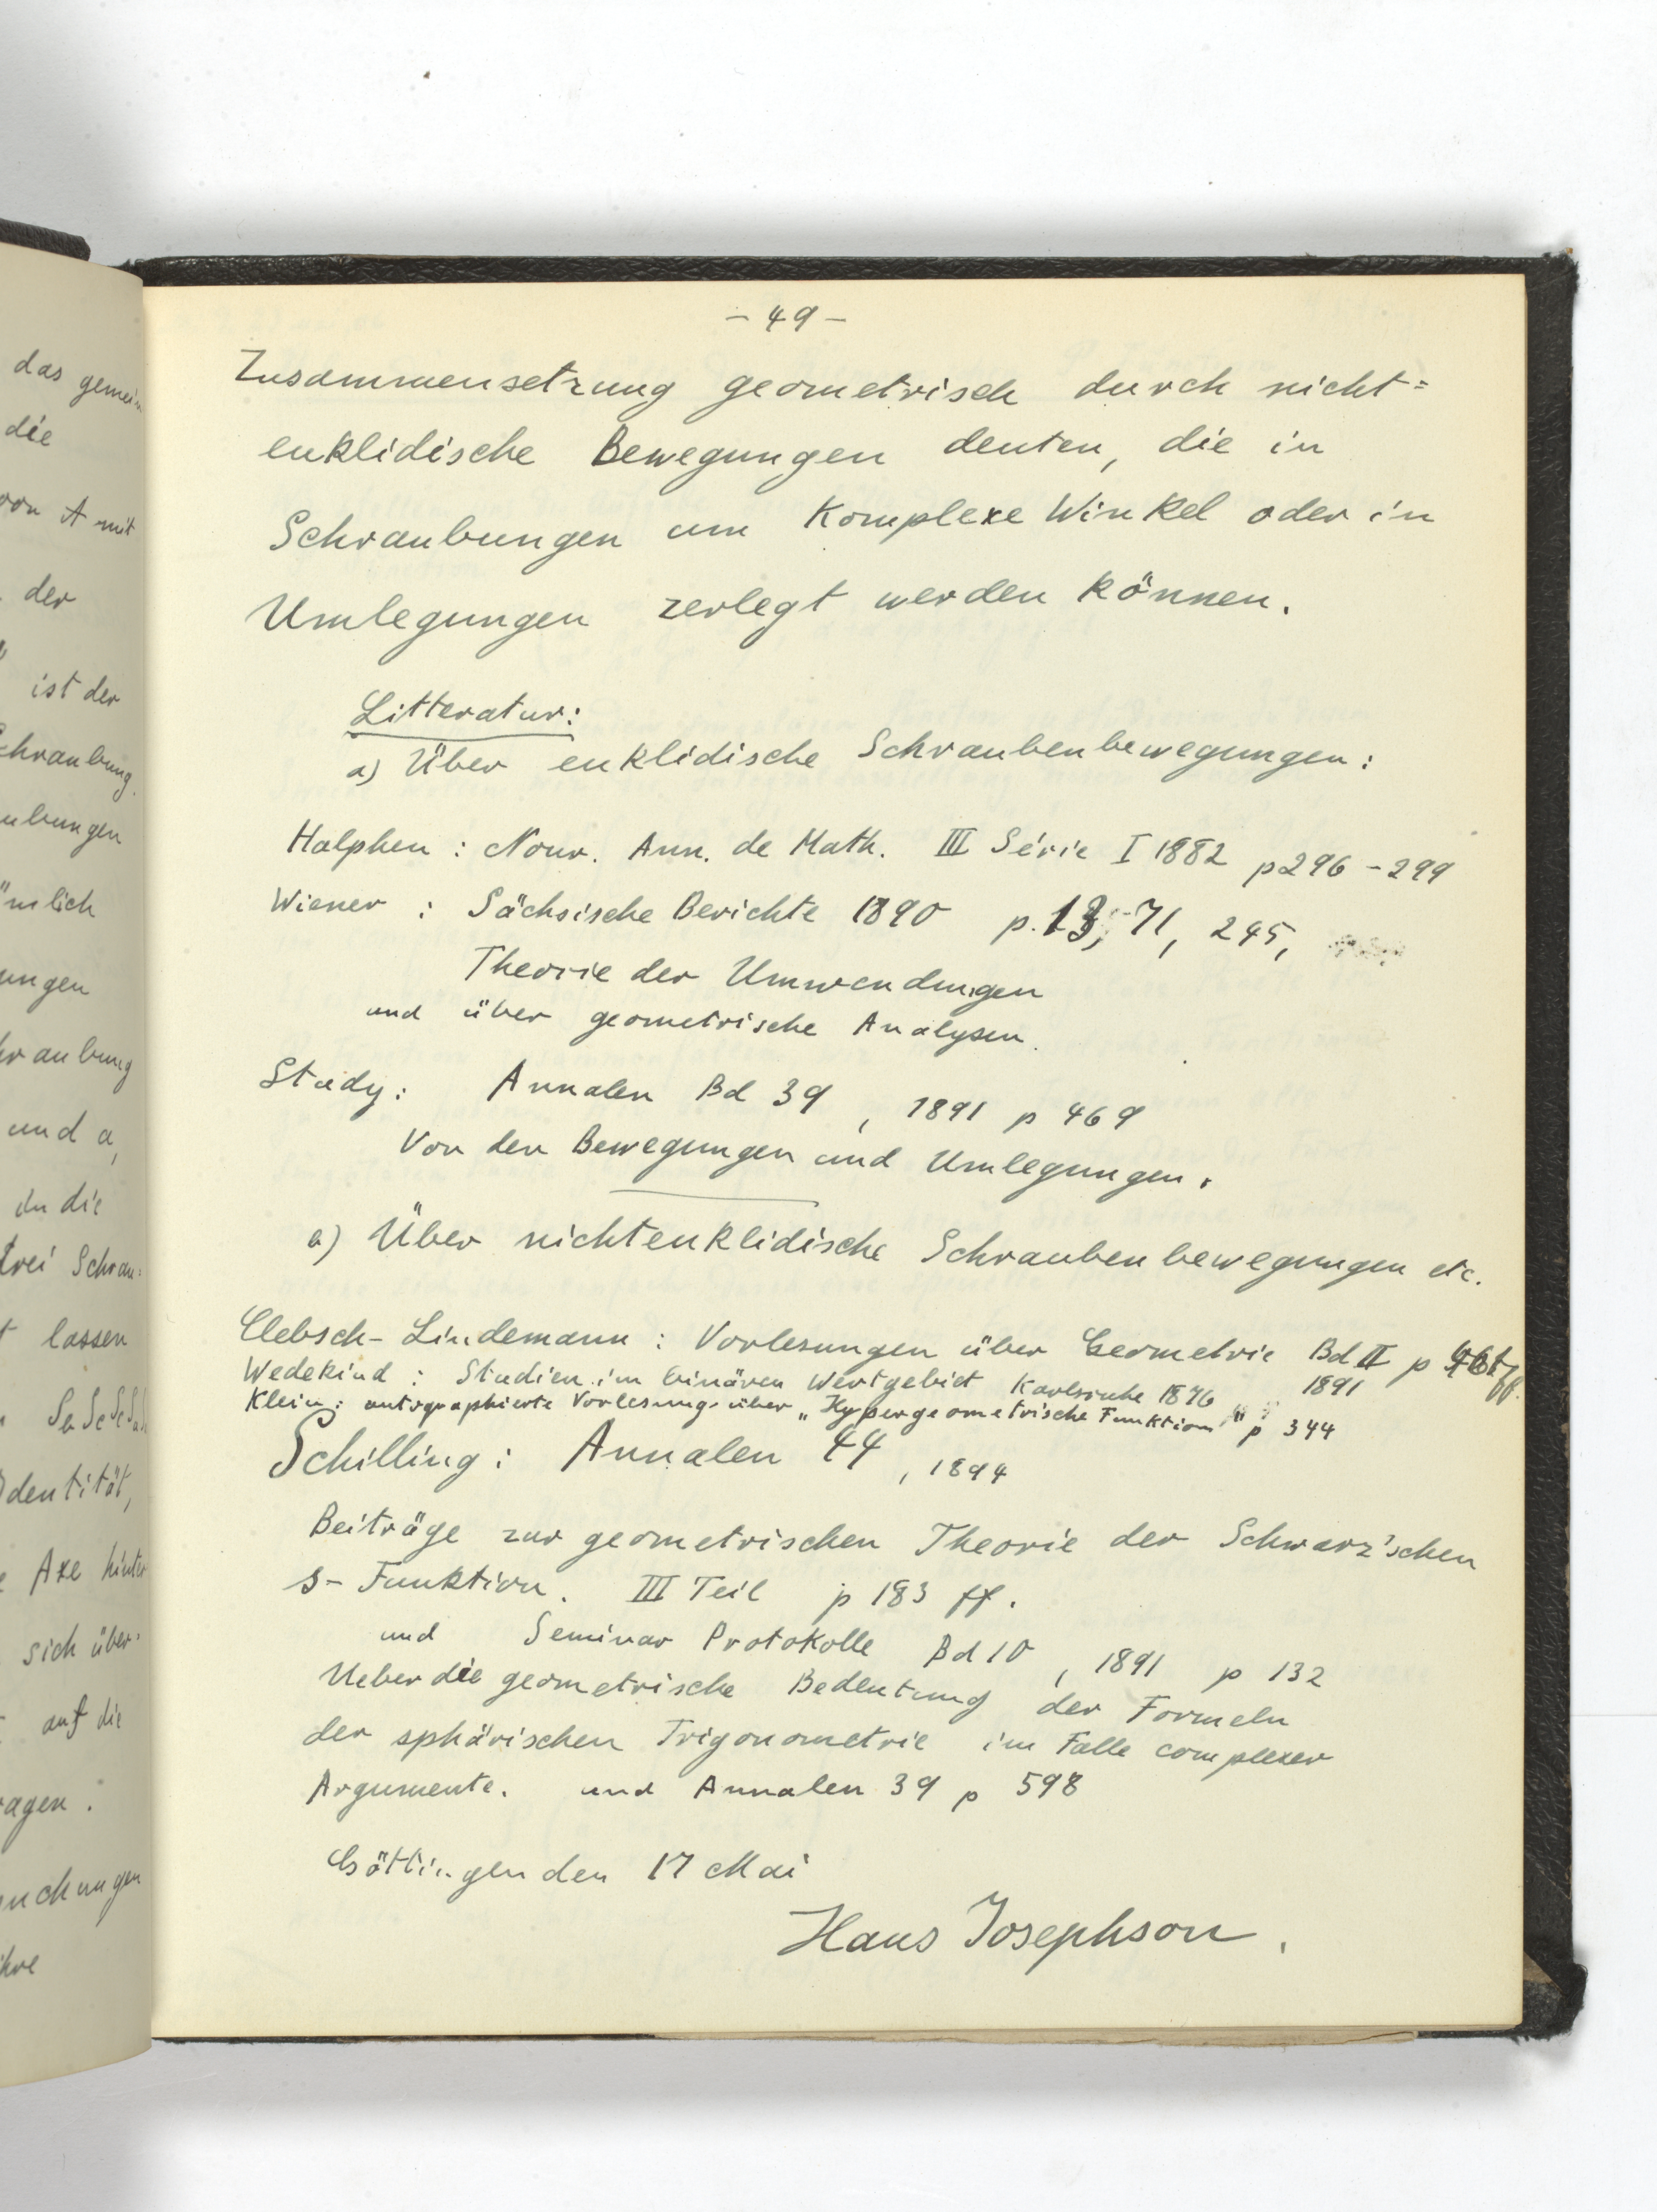 das gemein
die
von A mit
der
ist der
Schraubung
ubungen
ümlich
ungen
hraubung
und a,
in die
drei Schrau=
lassen
Identität,
Axe hinter
sich über=
auf die
ragen.
uchungen
ihre
- 49 -
Zusammensetzung geometrisch durch nicht=
euklidische Bewegungen deuten, die in
Schraubungen um Komplexe Winkel oder in
Umlegungen zerlegt werden können.
Litteratur:
a) Über euklidische Schraubenbewegungen:
Halphen : Nouv. Ann. de Math. III Série I 1882 p 296 - 299
Wiener : Sächsische Berichte 1890 p. 13, 71, 245,
Theorie der Umwendungen
und über geometrische Analysen.
Study: Annalen Bd 39, 1891 p 469
Von den Bewegungen und Umlegungen.
a) Über nichteuklidische Schraubenbewegungen etc.
Clebsch-Lindemann : Vorlesungen über Geometrie Bd II p ff.
1891
Wedekind : Studien im binären Wertgebiet Karlsruhe 1876
Klein: autographierte Vorlesung über „Hypergeometrische Funktion" p 344
Schilling: Annalen 44, 1894
Beiträge zur geometrischen Theorie der Schwarz'schen
s-Funktion. III Teil p 183 ff.
und Seminar Protokolle Bd 10, 1891 p 132
Ueber die geometrische Bedeutung der Formeln
der sphärischen Trigonometrie im Falle complexer
Argumente. und Annalen 39 p 598
Göttingen den 17 Mai
Hans Josephson.